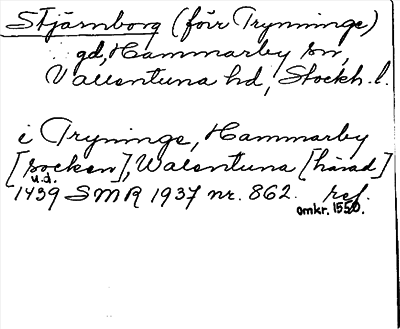 Stjärnborg (förr Tryninge)
gd, Hammarby sn,
Vallentuna hd, Stockh. l.
i Tryninge, Hammarby
[socken], Walentuna [härad]
u.d.
1439 SMR 1937 nr. 862. ref.
omkr. 1550.